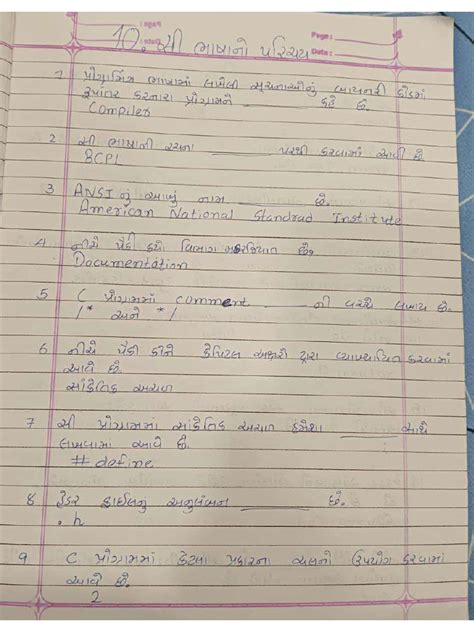 Page :
Date :
10. સી ભાષાનો પરિચય
1 પ્રોગ્રામિંગ ભાષામાં લખેલી સૂચનાઓનું બાયનરી કોડમાં
રૂપાંતર કરનારા પ્રોગ્રામને ______ કહે છે.
Compiler
2 સી ભાષાની રચના ______ પરથી કરવામાં આવી છે.
BCPL
3 ANSI નું આખું નામ ______ છે.
American National Standrad Institute
4 નીચે પૈકી કયો વિભાગ મરજિયાત છે?
Documentation
5 C પ્રોગ્રામમાં comment ______ ની વચ્ચે લખાય છે.
/* અને */
6 નીચે પૈકી કોને કેપિટલ અક્ષરો દ્વારા વ્યાખ્યાયિત કરવામાં
આવે છે.
સાંકેતિક અચળ
7 સી પ્રોગ્રામમાં સાંકેતિક અચળ હંમેશા ______ સાથે
લખવામાં આવે છે.
#define
8 હેડર ફાઈલનું અનુલંબન ______ છે.
.h
9 C પ્રોગ્રામમાં કેટલા પ્રકારના ચલનો ઉપયોગ કરવામાં
આવે છે.
2